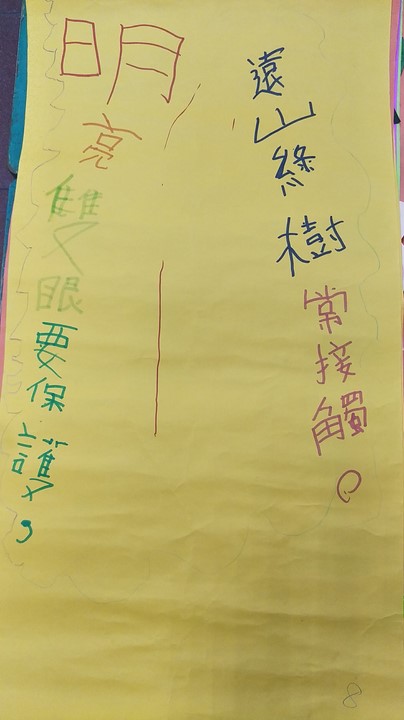 明亮雙眼要保護，
遠山綠樹常接觸。
8